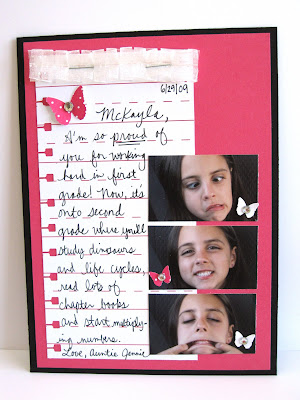 6/29/09
Mckayla,
I'm so proud of
you for working
hard in first
grade! Now, it's
onto second
grade where you'll
study dinosaurs
and life cycles,
read lots of
chapter books
and start multiply-
ing numbers.
Love, Auntie Jennie